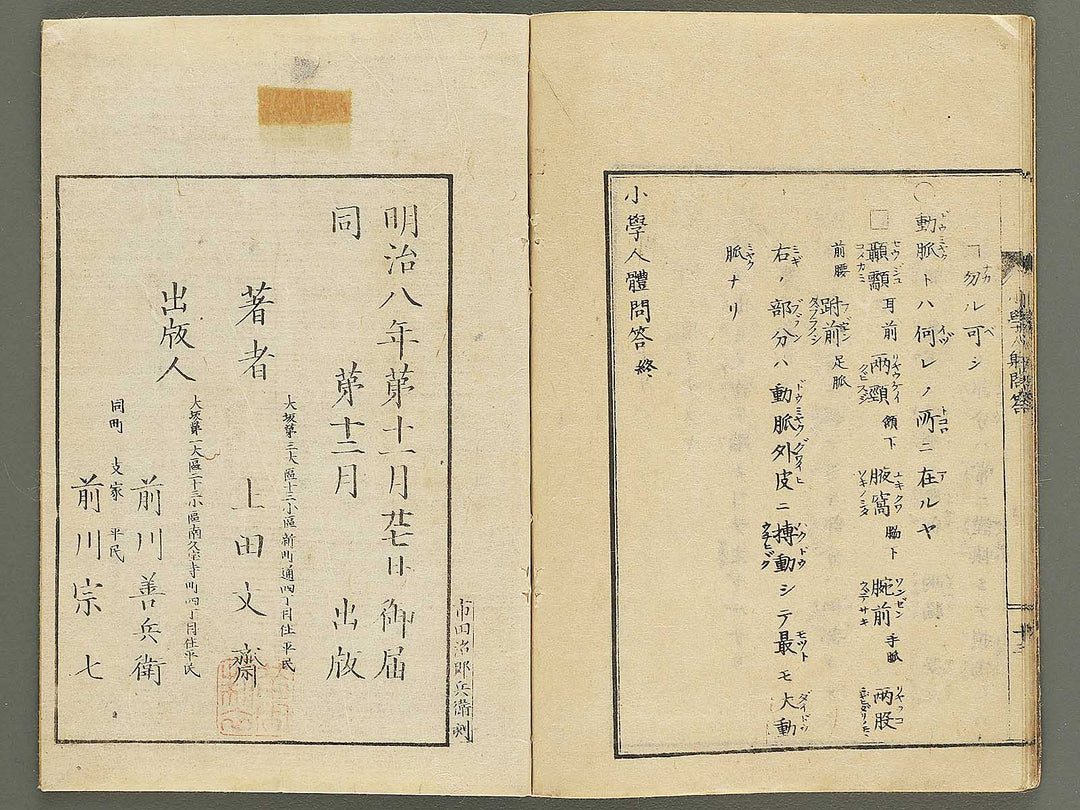 勿ル可シ
動脈トハ何レノ所ニ在ルヤ
顳顬 耳前 兩頸 頷下 腋窩 脇下 腕前 手脈 兩股
前腰 跗前 足脈
右ノ部分ハ動脈外皮ニ搏動シテ最モ大動
脈ナリ
小學人體問答 終
小學人體問答
十三
明治八年第十一月廿七日御届
同 第十二月 出版
大坂第三大區十二小區新町通四丁目住 平民
著者 上田文齋
大坂第一大區二十三小區南久宝寺町四丁目住平民
出版人 前川善兵衛
同町 支家 平民
前川宗七
市田治郎兵衛刻